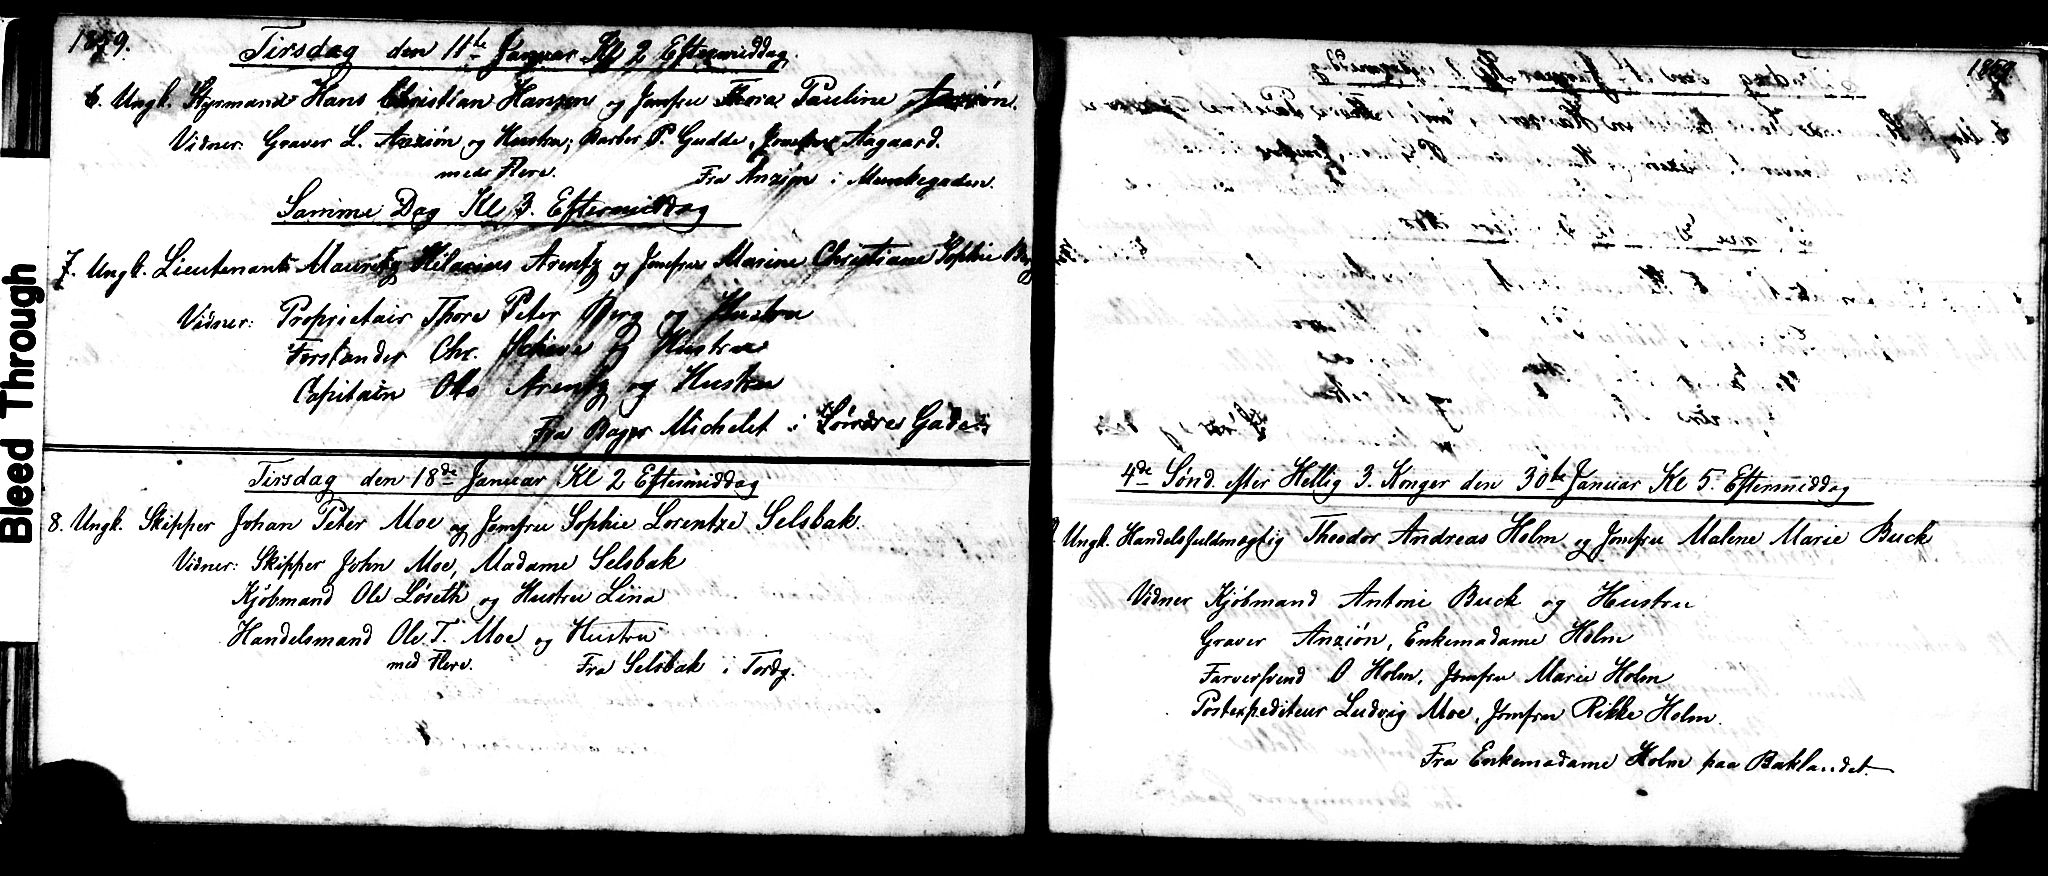 1859.
Tirsdag den 11te Januar Kl 2 Eftermiddag.
6. Ungk. Styrmand Hans Christian Hansen og Jomfru Thora Pauline Anziøn.
Vidner: Graver L. Anziøn og Hustru, Barber P. Gudde, Jomfru Aagaard.
med Flere. Fra Anziøn i Munkegaden.
Samme Dag Kl 3. Eftermiddag
7. Ungk. Lieutenant Mauritz Hilarius Arentz og Jomfru Marine Christiane Sophie Berg
Vidner: Proprietair Thore Peter Berg og Hustru
Forstander Chr. og Hustru
Capitain Otto Arentz og Hustru
Fra Bager Michelet i Søndre Gade
Tirsdag den 18de Januar Kl 2 Eftermiddag
8. Ungk. Skipper Johan Peter Moe og Jomfru Sophie Lorentze Selsbak.
Vidner: Skipper John Moe, Madame Selsbak
Kjøbmand Ole Løseth og Hustru Lina
Handelsmand Ole T. Moe og Hustru
med Flere. Fra Selsbak i Tordg.
1859.
4de Sønd. efter Hellig 3. Konger den 30te Januar Kl 5. Eftermiddag
Ungk. Handelsfuldmægtig Theodor Andreas Holm og Jomfru Malene Marie Buck
Vidner Kjøbmand Antoni Buck og Hustru
Graver Anziøn, Enkemadame Holm
Farversvend O Holm, Jomfru Marie Holm
Postexpediteur Ludvig Moe, Jomfru Rikke Holm.
Fra Enkemadame Holm paa Baklandet.
Bleed Through